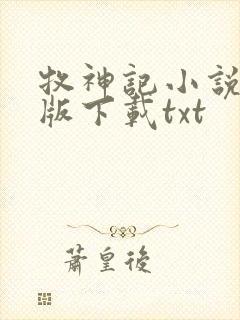 牧神記小說
版下載txt
蕭皇後